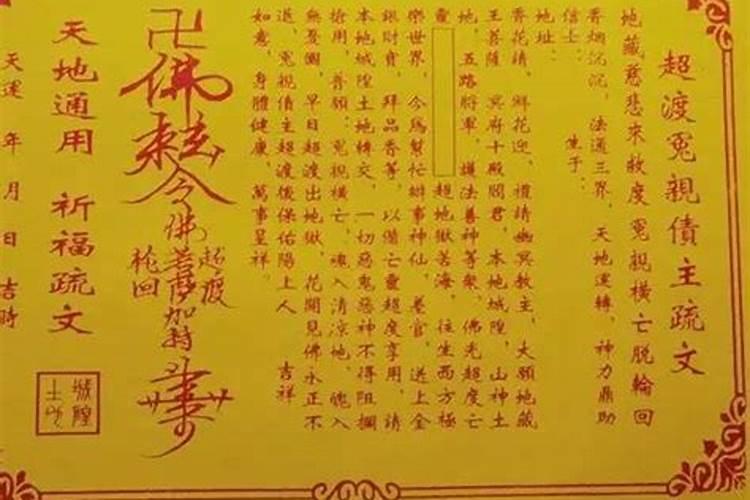 超渡冤親債主疏文
地藏慈悲來救度冤親橫亡脫輪回
香烟沉沉，法通三界，天地運轉，神力鼎助
信士：　生于：
地址：
香花請，鮮花迎，禮請幽冥教主，大願地藏
王菩薩　冥府十殿閻君，本地城隍，山神土
地，五路將軍，護法善神等眾，佛光超度亡
靈　超地獄苦海，往生西方極
樂世界，今為幫忙辦事神仙，差官，送上金
銀財寶，拜品香等，以備亡靈超度享用，請
本地城隍土地轉交，一切惡鬼惡神不得阻攔
搶用，普願：冤親橫亡，魂入清涼地，魄入
無憂園，早日超渡出地獄，花開見佛永正不
退，冤親債主超渡後保佑陽上人　吉祥
如意，身體健康，萬事呈祥。
卍
佛
令
佛菩薩加持
超渡
輪回
天地通用　祈福疏文
城隍
土地
天運　年　月　日　吉時